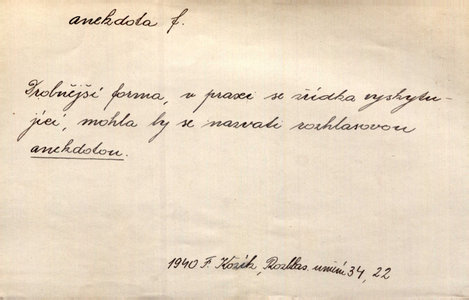 anekdota f.
Drobnější forma, v praxi se zřídka vyskytu-
jící, mohla by se nazvati rozhlasovou
anekdotou.
1940 F. Kožík, Rozhlas. umění 34, 22